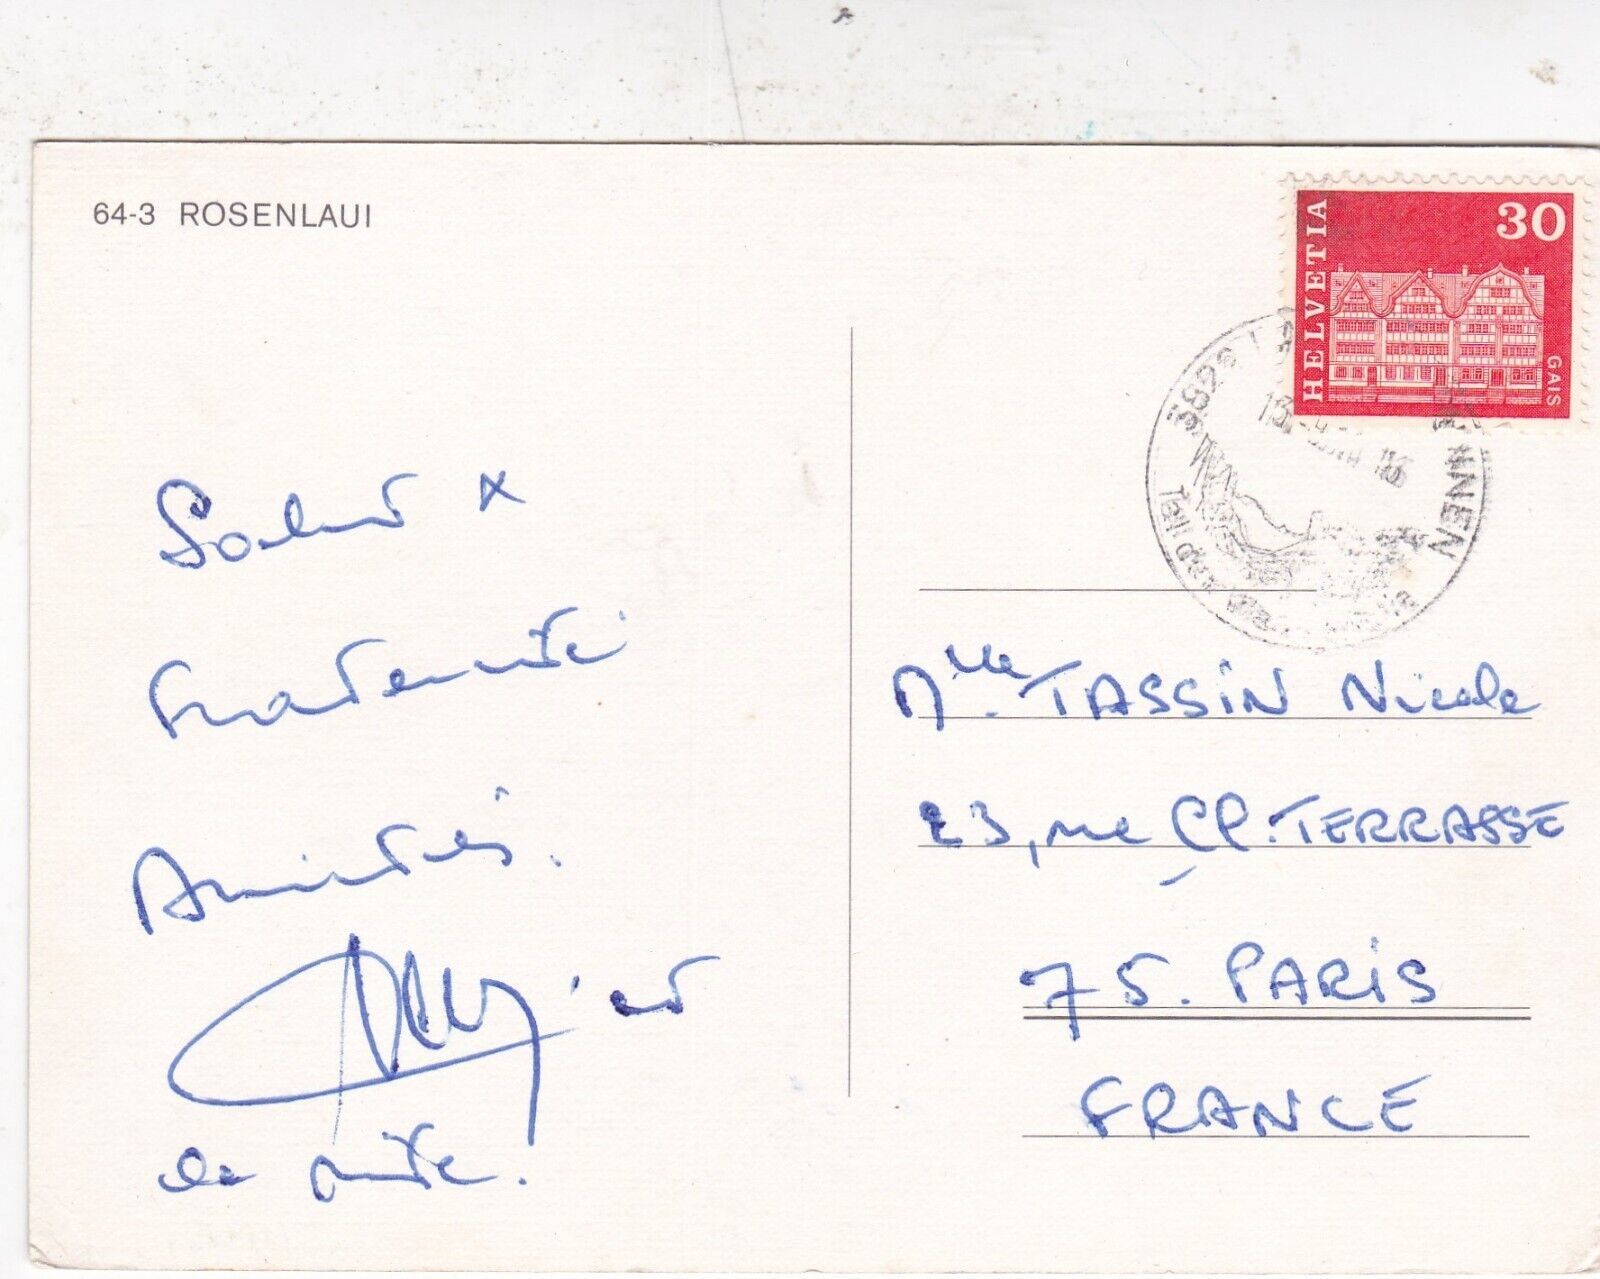 64-3 ROSENLAUI
HELVETIA
30
GAIS
3823
NNEN
Tell der
Salut x
Fraternité
Amitiés.
de suite.
Mlle TASSIN Nicole
23, rue Cl. TERRASSE
75. PARIS
FRANCE